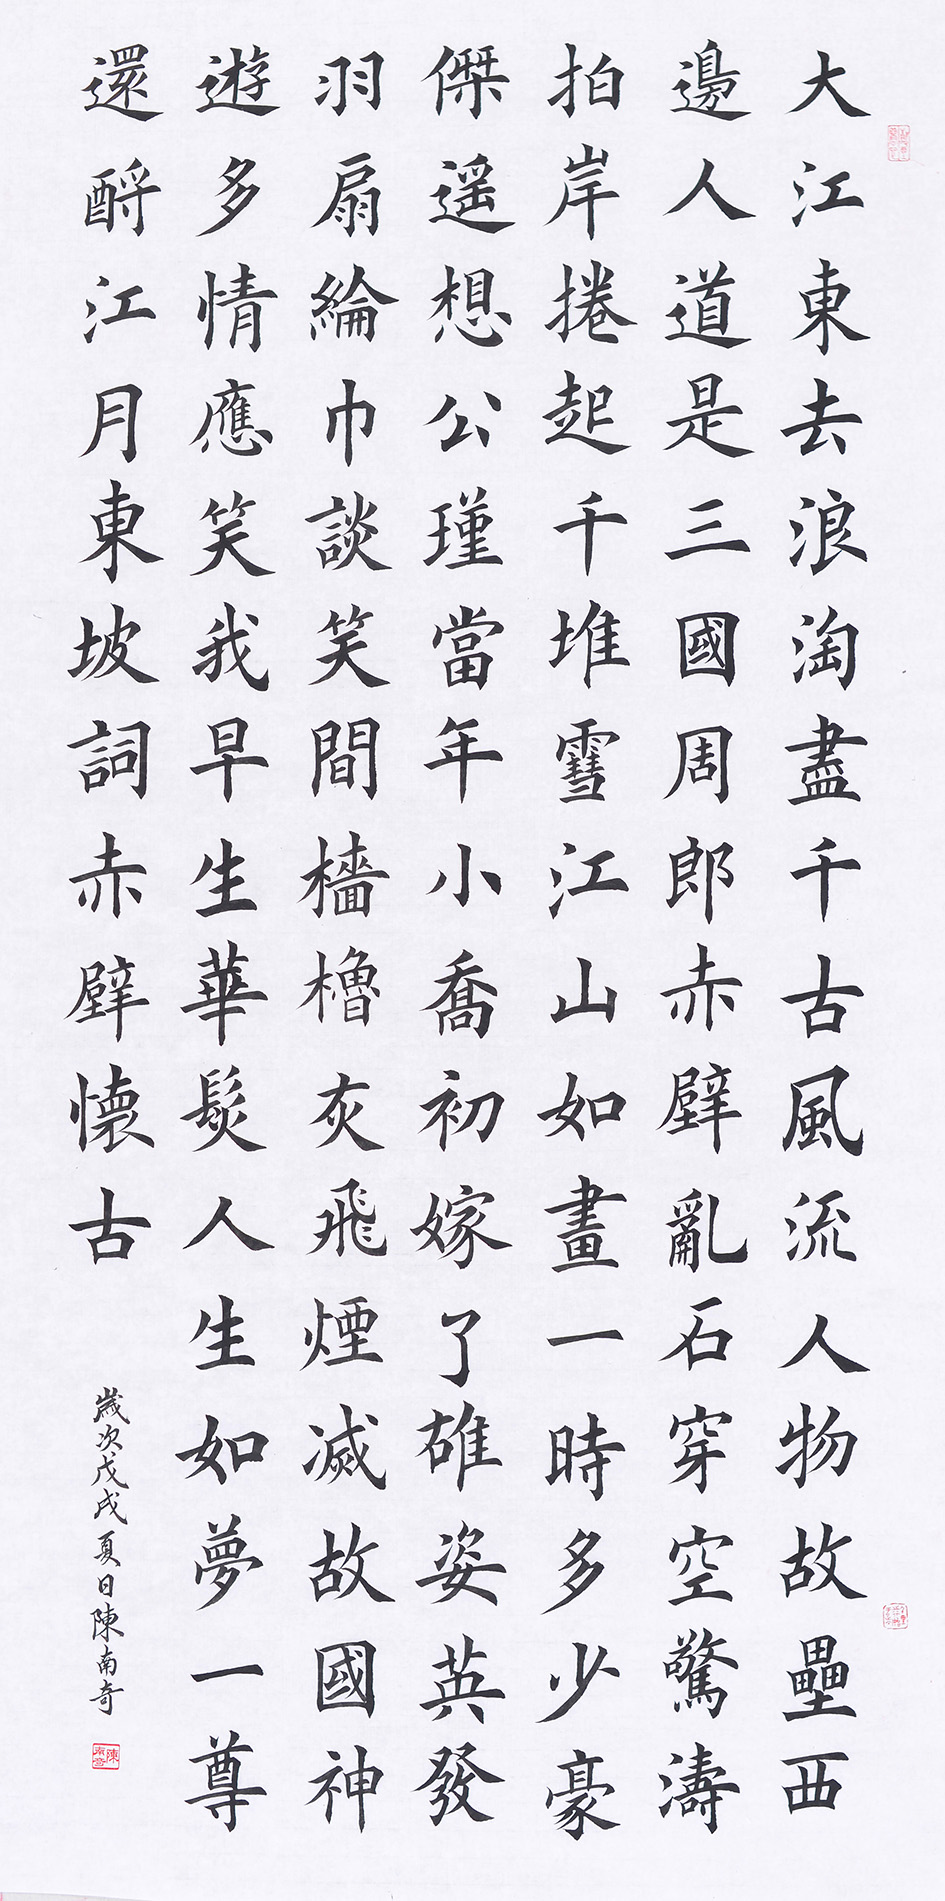 大江東去浪淘盡千古風流人物故壘西
邊人道是三國周郎赤壁亂石穿空驚濤
拍岸捲起千堆雪江山如畫一時多少豪
傑遥想公瑾當年小喬初嫁了雄姿英發
羽扇綸巾談笑間檣櫓灰飛煙滅故國神
遊多情應笑我早生華髮人生如夢一尊
還酹江月東坡詞赤壁懷古
歲次戊戌夏日陳南奇